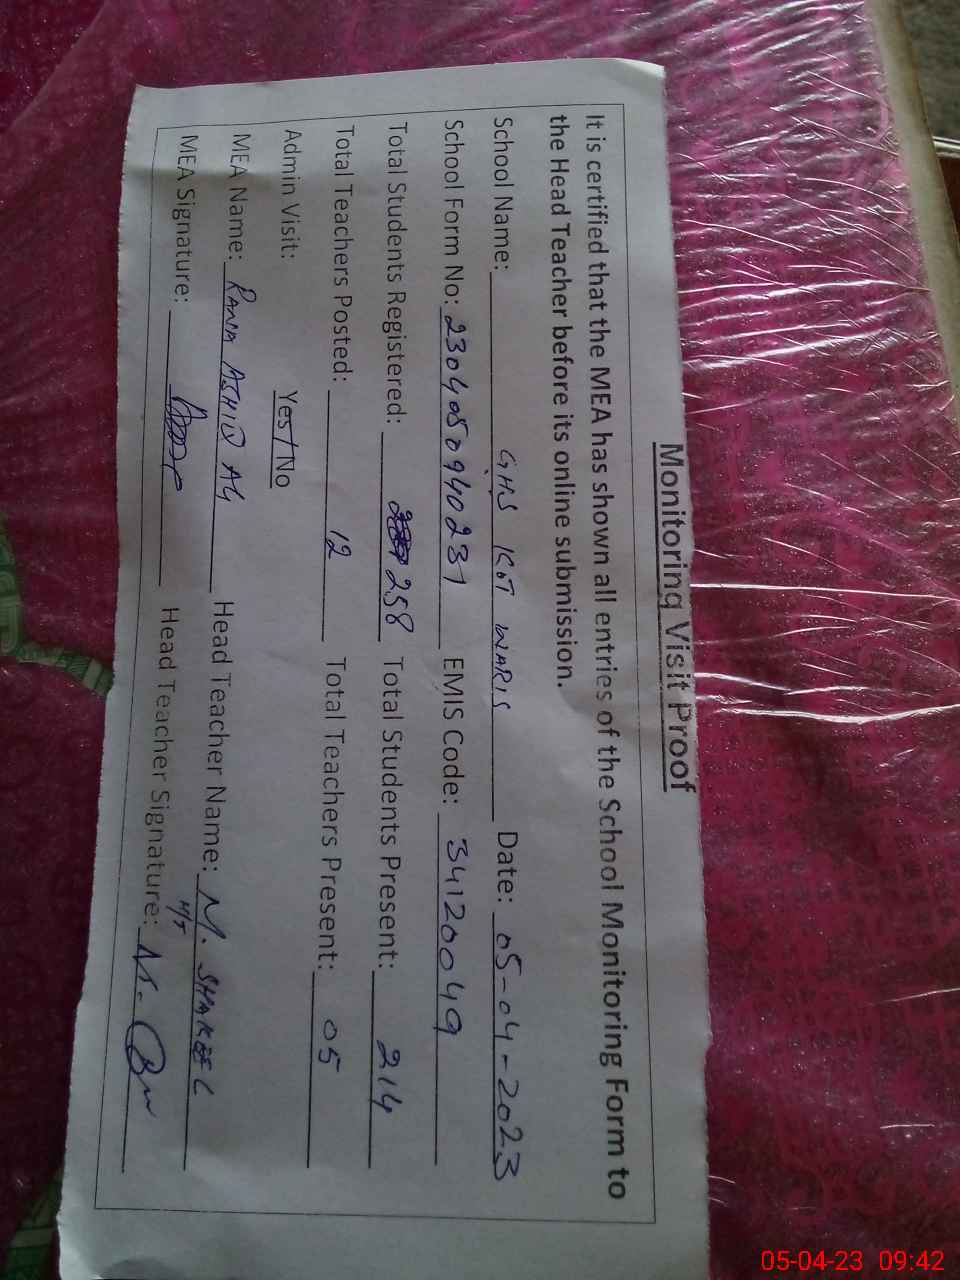 Monitoring Visit Proof
It is certified that the MEA has shown all entries of the School Monitoring Form to
the Head Teacher before its online submission.
School Name: GHS KOT WARIS Date: 05-04-2023
School Form No: 2304050940231 EMIS Code: 34120049
Total Students Registered: 258 Total Students Present: 214
Total Teachers Posted: 12 Total Teachers Present: 05
Admin Visit: Yes/No
MEA Name: RANA ASHIQ Head Teacher Name: M. SHAKEEL
MEA Signature: Head Teacher Signature:
05-04-23 09:42